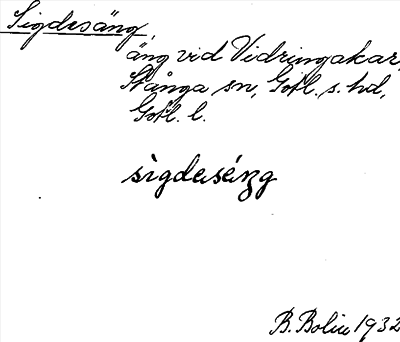 Sigdesäng,
äng vid Vidringakar,
Stånga sn, Gotl. s. hd,
Gotl. l.
sìgdeséng
B. Bolin 1932